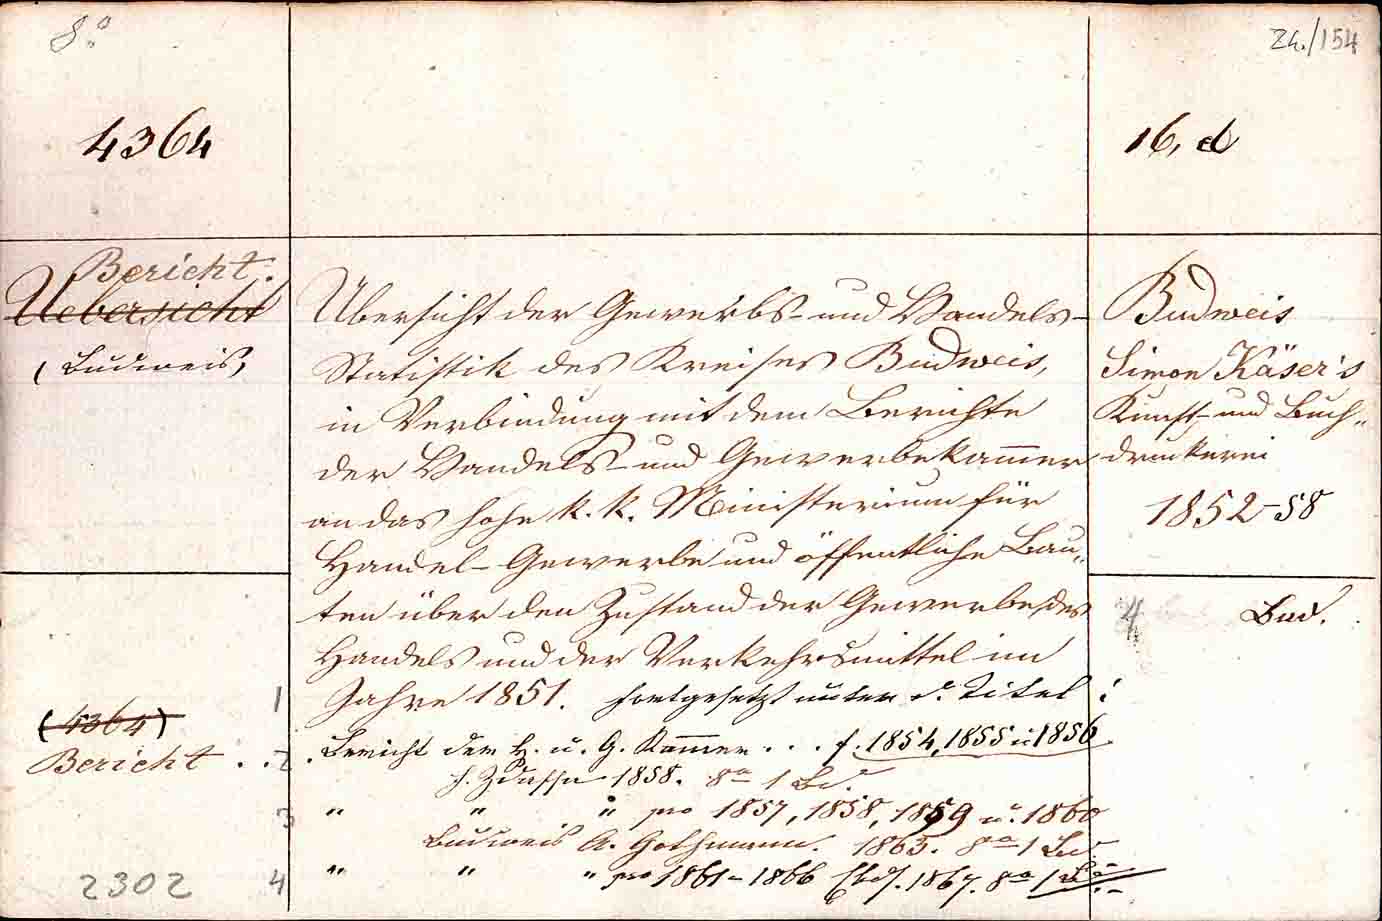 8°
24./154
4364
16, d
Bericht.
Uebersicht
(Budweis)
Übersicht der Gewerbs- und Handels-
Statistik des Kreises Budweis,
in Verbindung mit dem Berichte
der Handels- und Gewerbekammer
an das hohe k. k. Ministerium für
Handel- Gewerbe und öffentliche Bau-
ten über den Zustand der Gewerbe, des
Handels und der Verkehrsmittel im
Jahre 1851. fortgesetzt unter d. Titel:
Bericht der H. u. G. Kammer . . . f. 1854, 1855 u 1856
1858. 8° 1 Bd.
" " " pro 1857, 1858, 1859 u. 1860
Budweis A. Gothmann. 1863. 8° 1 Bd.
" " " pro 1861-1866 Ebd. 1867. 8° 1 Bd.
Budweis
Simon Käser's
Kunst- und Buch-
druckerei
1852-58
4
Bud.
1
(4364)
Bericht . . 2
3
2302
4